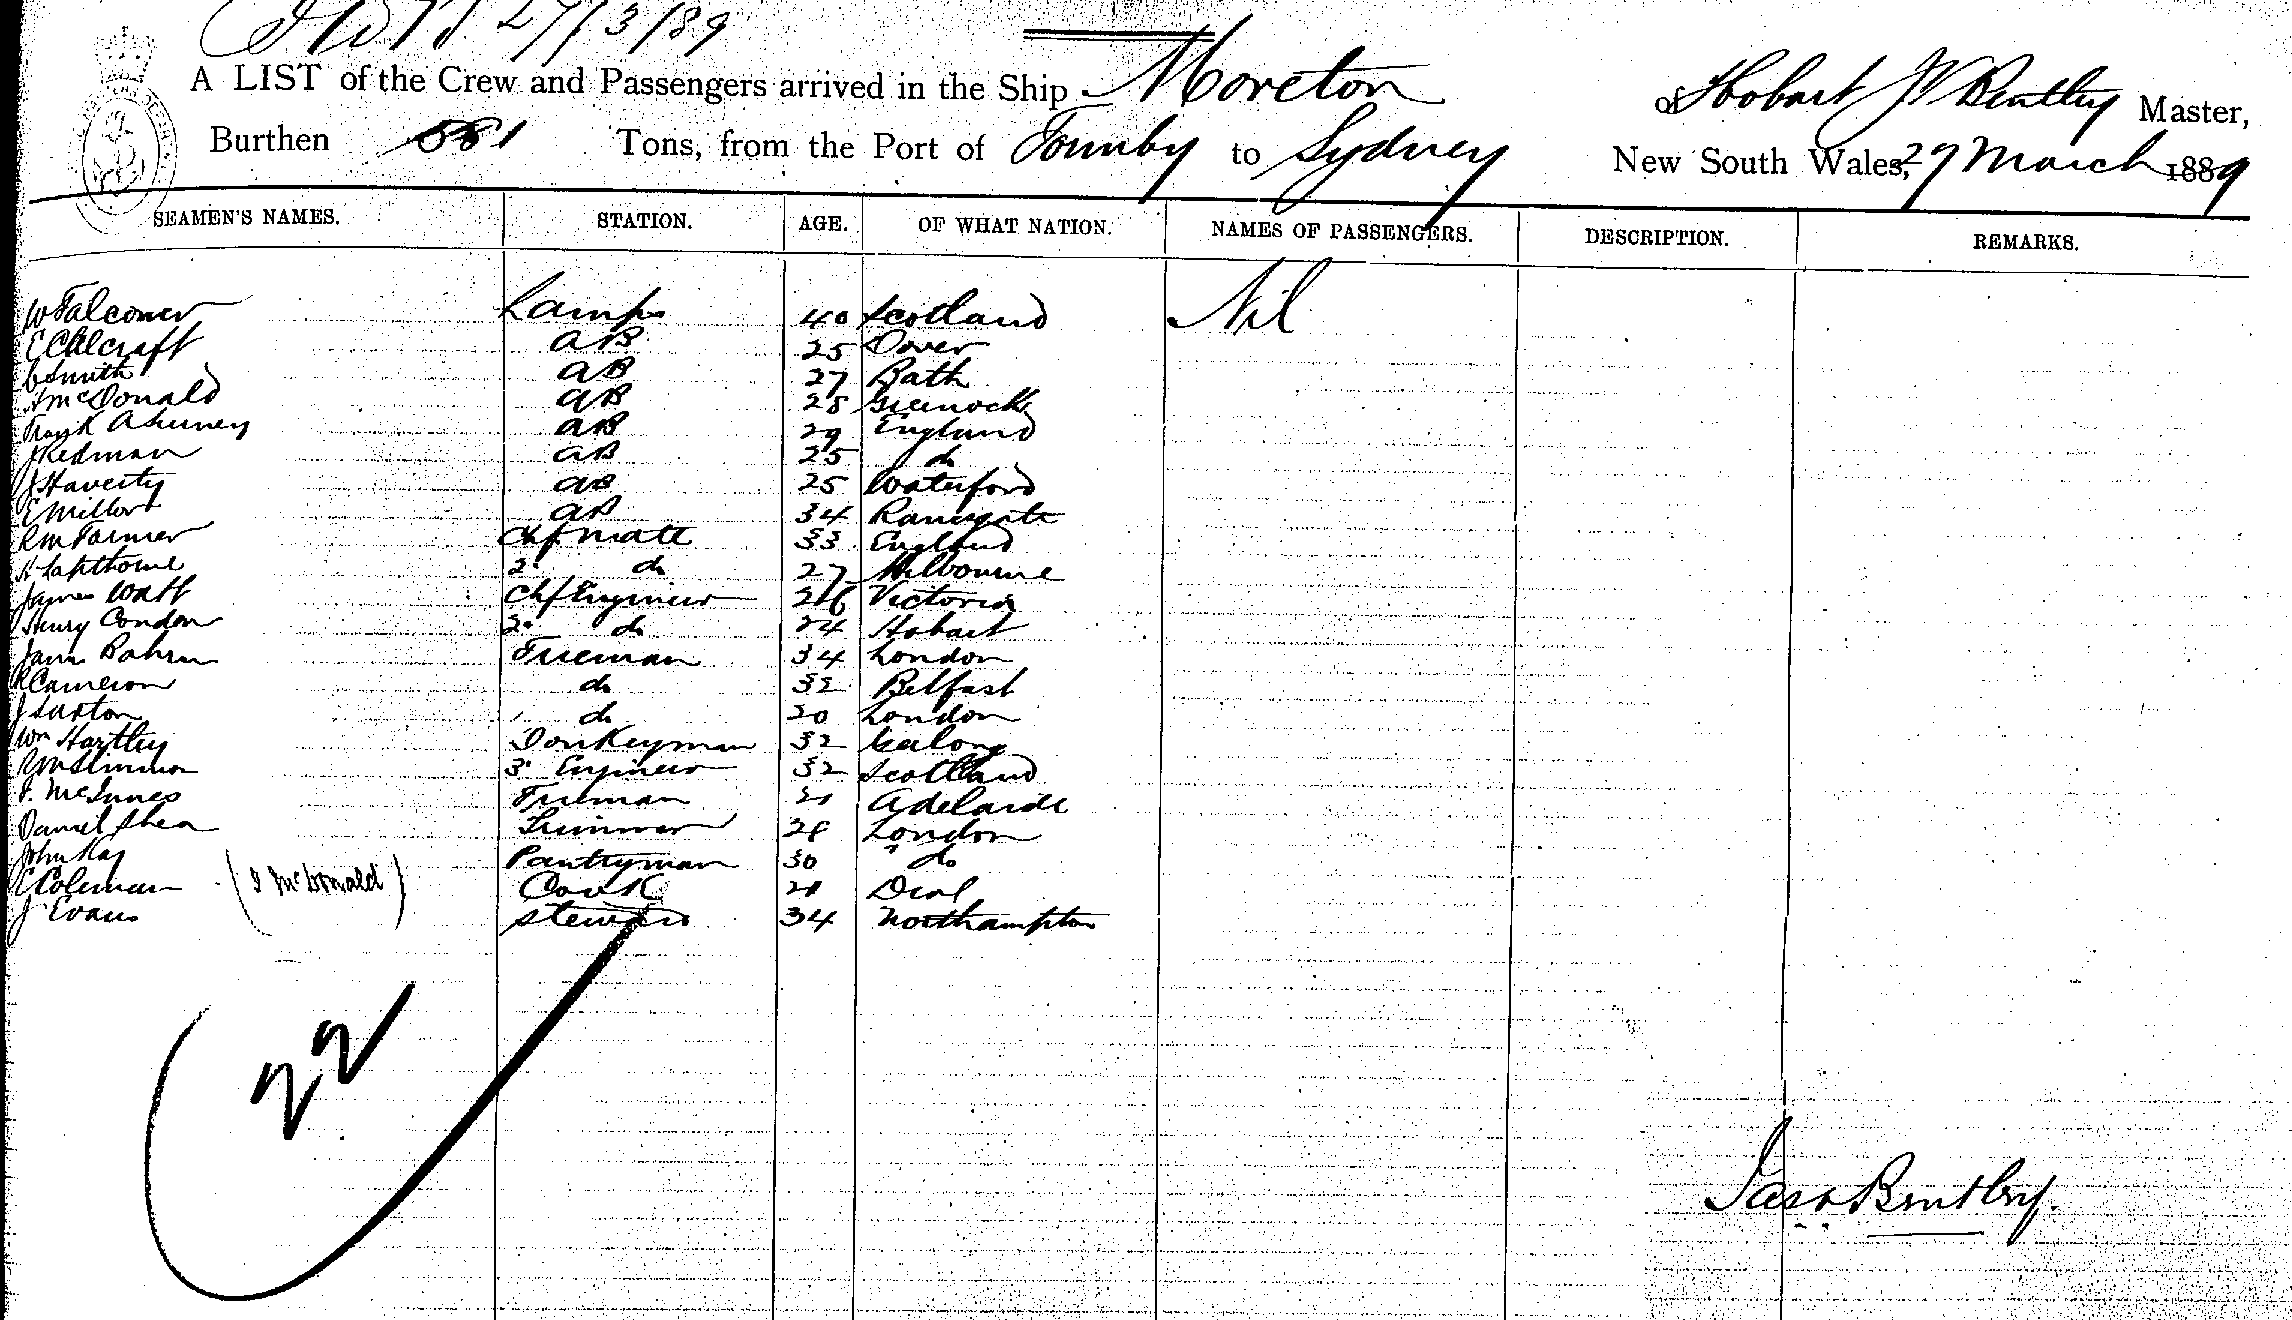 27/3/89
A LIST of the Crew and Passengers arrived in the Ship Moreton of Hobart J Bentley Master,
Burthen 581 Tons, from the Port of Townby to Sydney New South Wales, 27 March 1889
SEAMEN'S NAMES. STATION. AGE. OF WHAT NATION. NAMES OF PASSENGERS. DESCRIPTION. REMARKS.
W Falconer Lamps 40 Scotland Nil
E Chlcraft AB 25 Dover
C Smith AB 27 Bath
A McDonald AB 28 Greenock
Frank AB 29 England
J Redman AB 25 do
J Haverty AB 25 Waterford
E Miller AB 34 Ramsgate
R M Farmer Chf Mate 33 England
Lapthorne 2 do 27 Melbourne
James Watt Chf Engineer 26 Victoria
Henry Condon 2 do 24 Hobart
James Fireman 34 London
R Cameron do 32 Belfast
J Saxton do 20 London
Wm Hartley Donkeyman 32 Geelong
3 Engineer 32 Scotland
McInnes Fireman 21 Adelaide
Daniel Shea Trimmer 28 London
John Kay Pantryman 30 do
C Coleman (J McDonald) Cook 21 Deal
J Evans Steward 34 Northampton
22
Jas Bentley.